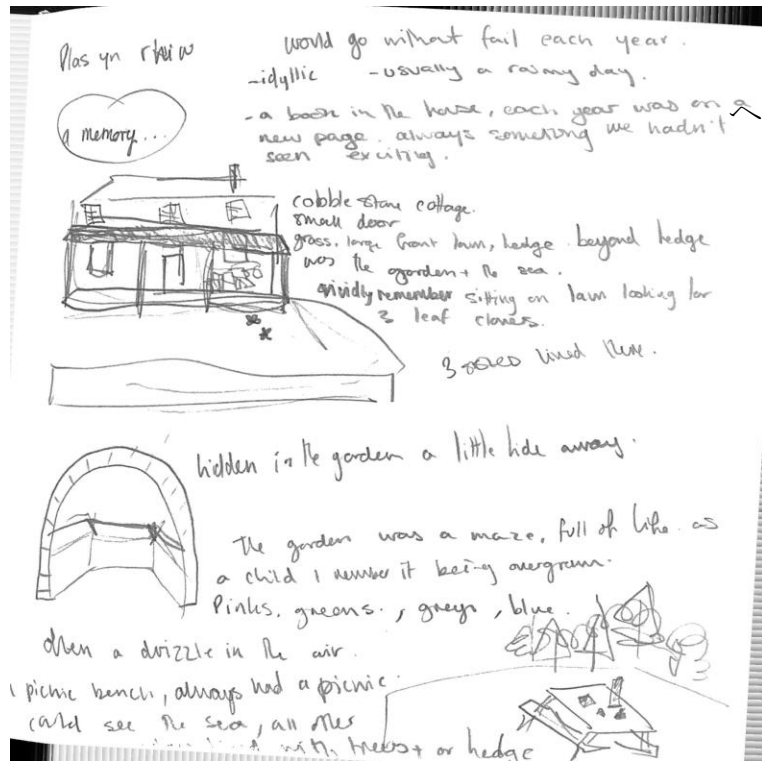 Plas yn rhiw
would go without fail each year.
-idyllic -usually a rainy day.
a memory...
- a book in the house, each year was on a
new page. always something we hadn't
seen exciting.
cobble stone cottage.
small door
grass. large front lawn, hedge. beyond hedge
was the garden + the sea.
vividly remember sitting on lawn looking for
3 leaf clovers.
3 lived there.
hidden in the garden a little hide away.
The garden was a maze, full of life. as
a child I remember it being overgrown.
Pinks, greens, greys, blue.
often a drizzle in the air.
picnic bench, always had a picnic.
could see the sea, all other
with trees + or hedge